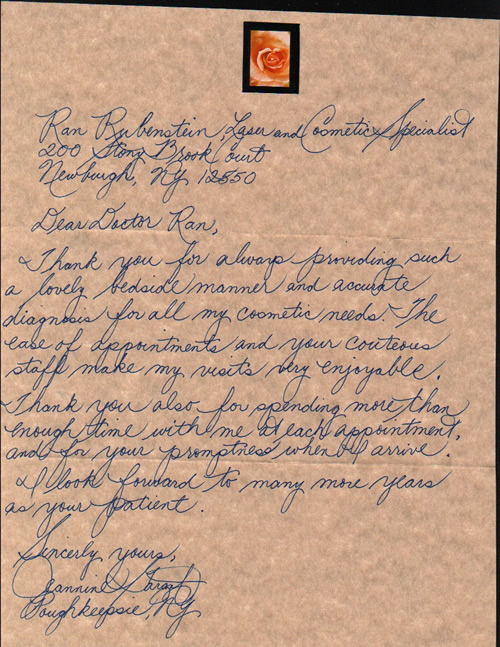 Ran Rubenstein, Laser and Cosmetic Specialist
200 Stony Brook Court
Newburgh, NY 12550
Dear Doctor Ran,
Thank you for always providing such
a lovely bedside manner and accurate
diagnosis for all my cosmetic needs. The
ease of appointments and your couteous
staff make my visits very enjoyable.
Thank you also for spending more than
enough time with me at each appointment,
and for your promptness when I arrive.
I look forward to many more years
as your patient.
Sincerly yours,
Jeannine
Poughkeepsie, NY